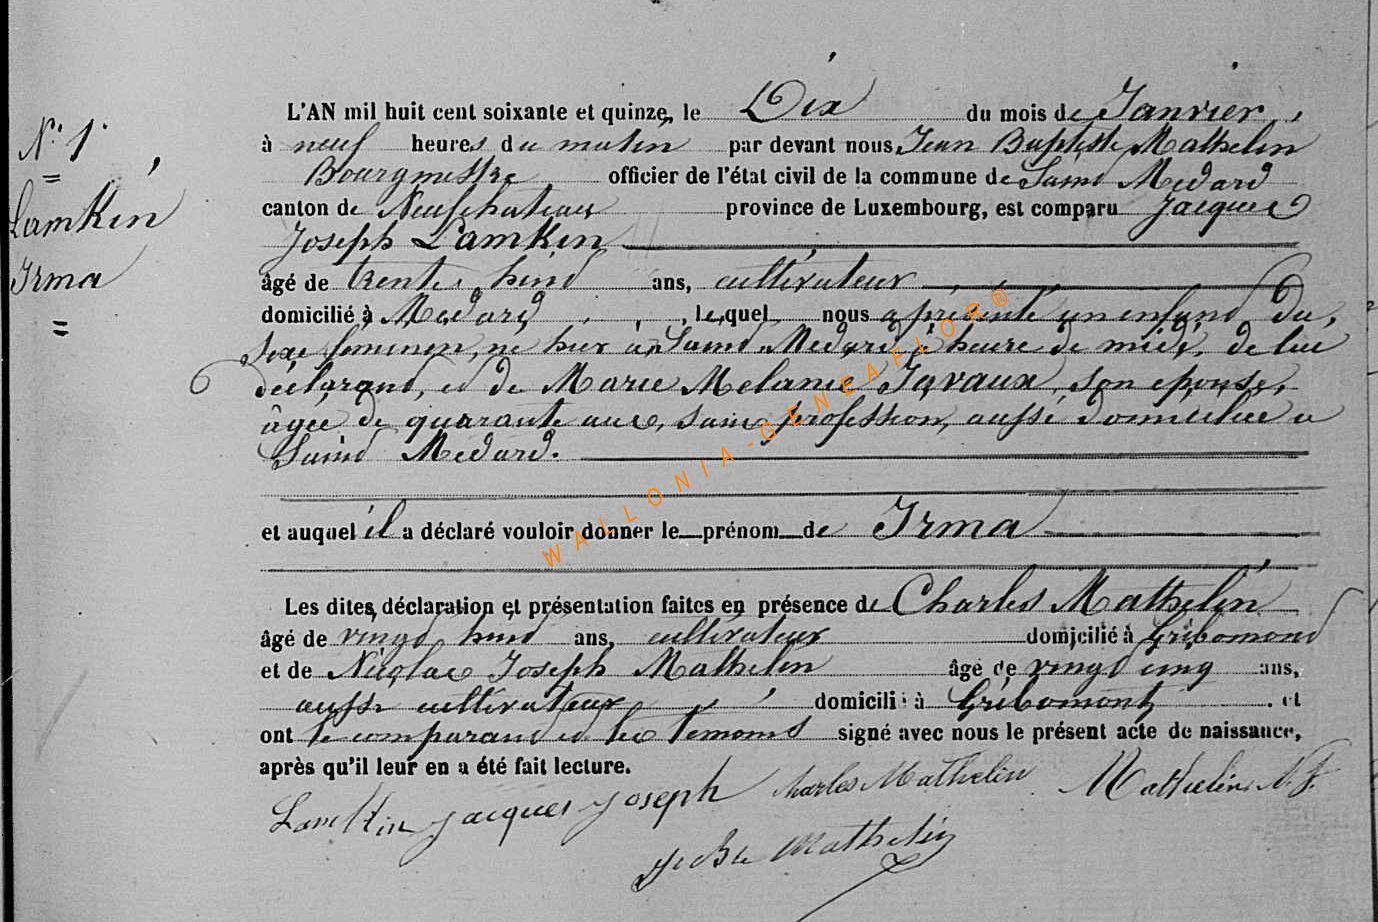 N.° 1.
Lamkin
Irma
L'AN mil huit cent soixante et quinze, le Dix du mois de Janvier,
à neuf heures du matin par devant nous Jean Baptiste Mathelin
Bourgmestre officier de l'état civil de la commune de Saint Medard
canton de Neufchateau province de Luxembourg, est comparu Jacques
Joseph Lamkin
âgé de trente huit ans, cultivateur
domicilié à Medard, lequel nous a présenté un enfant du
sexe feminin, né hier à Saint Medard à heure de midi, de lui
déclarant, et de Marie Melanie Javaux, son epouse,
âgée de quarante ans, sans profession, aussi domiciliée a
Saint Medard.
et auquel il a déclaré vouloir donner le prénom de Irma
Les dites déclaration et présentation faites en présence de Charles Mathelin
âgé de vingt huit ans, cultivateur domicilié à Gribomont
et de Nicolas Joseph Mathelin âgé de vingt cinq ans,
aussi cultivateur domicilié à Gribomont, et
ont le comparant et les temoins signé avec nous le présent acte de naissance,
après qu'il leur en a été fait lecture.
Lamkin jacques joseph Charles Mathelin Mathelin N. J.
J Bte Mathelin
WALLONIA-GENEAFLOR®